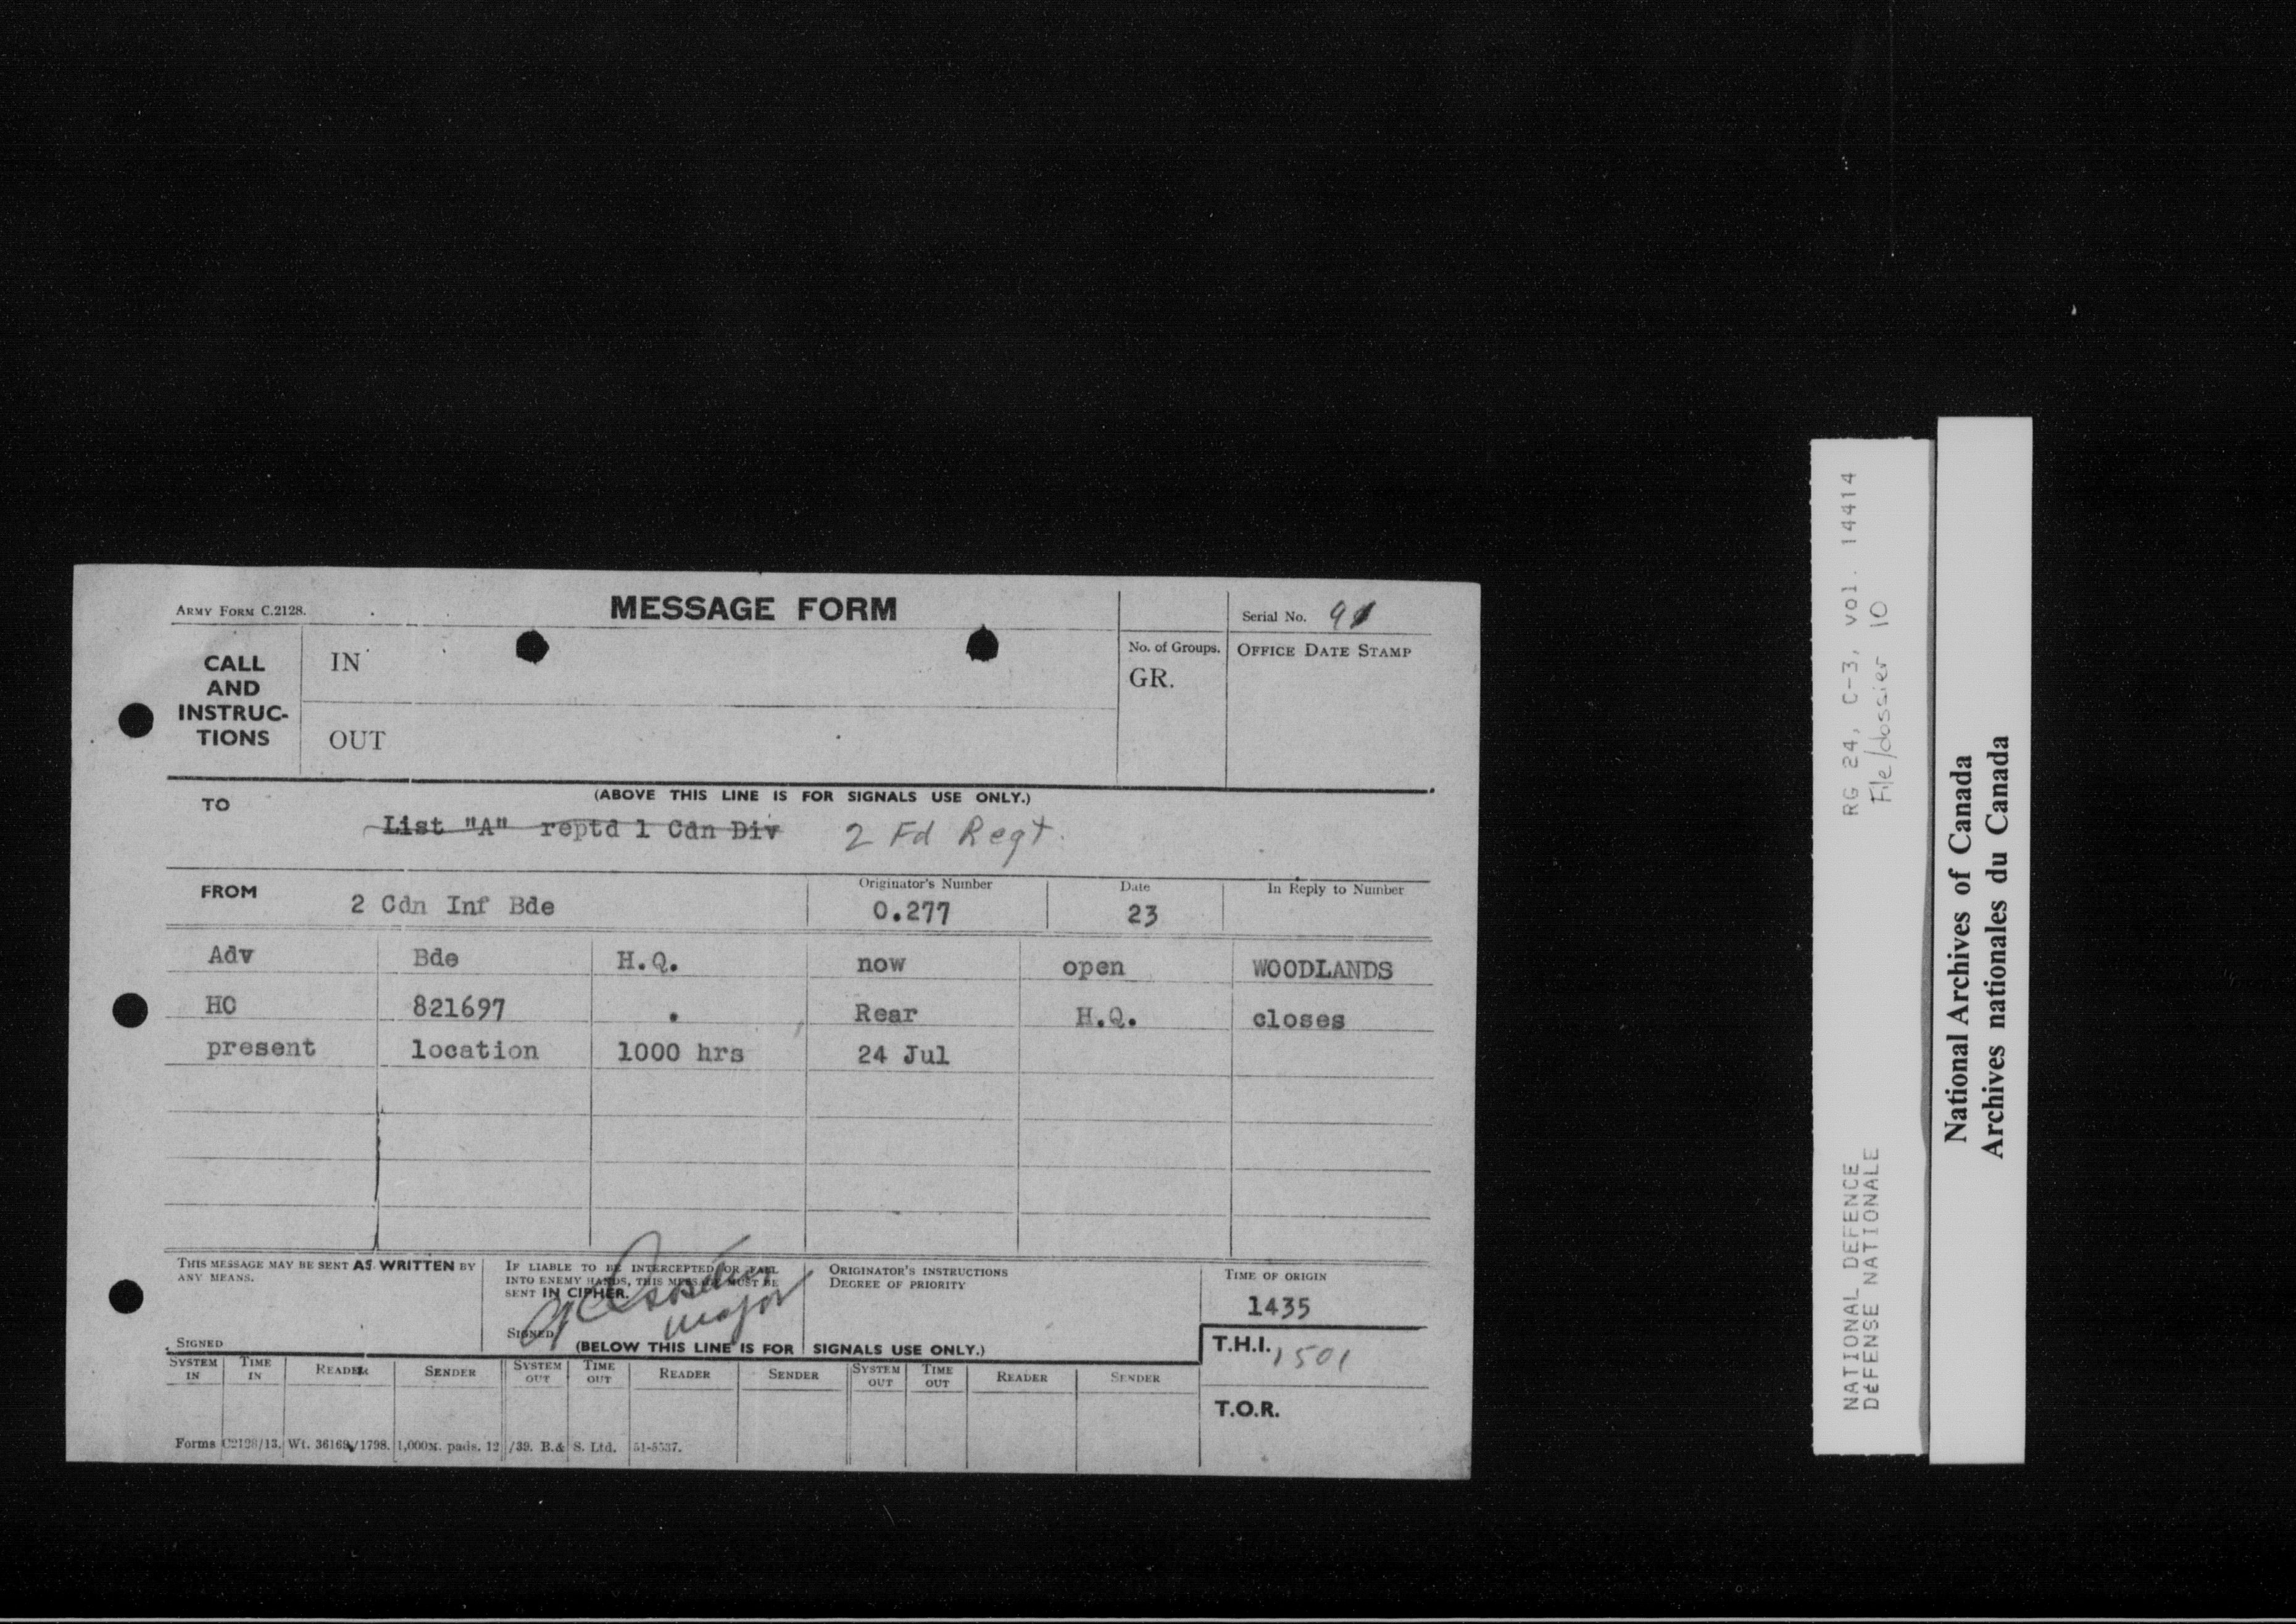 ARMY FORM C.2128.
MESSAGE FORM
Serial No. 91
CALL AND INSTRUC-TIONS
IN
OUT
No. of Groups.
GR.
OFFICE DATE STAMP
(ABOVE THIS LINE IS FOR SIGNALS USE ONLY.)
TO
List "A" reptd 1 Cdn Div 2 Fd Regt.
FROM 2 Cdn Inf Bde
Originator's Number 0.277
Date 23
In Reply to Number
Adv Bde H.Q. now open WOODLANDS
HC 821697 . Rear H.Q. closes
present location 1000 hrs 24 Jul
THIS MESSAGE MAY BE SENT AS WRITTEN BY ANY MEANS.
SIGNED
IF LIABLE TO BE INTERCEPTED OR FALL INTO ENEMY HANDS, THIS MESSAGE MUST BE SENT IN CIPHER.
SIGNED
Major
ORIGINATOR'S INSTRUCTIONS
DEGREE OF PRIORITY
TIME OF ORIGIN
1435
(BELOW THIS LINE IS FOR SIGNALS USE ONLY.)
T.H.I. 1501
T.O.R.
SYSTEM IN TIME IN READER SENDER SYSTEM OUT TIME OUT READER SENDER SYSTEM OUT TIME OUT READER SENDER
Forms C2128/13. Wt. 36169/1798. 1,000M. pads. 12/39. B.& S. Ltd. 51-5537.
RG 24, C-3, vol. 14414
File/dossier 10
NATIONAL DEFENCE
DÉFENSE NATIONALE
National Archives of Canada
Archives nationales du Canada